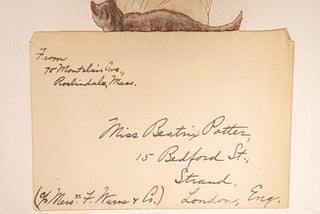 From
75 Montclair Ave,
Roslindale, Mass.
Miss Beatrix Potter,
15 Bedford St.,
Strand,
London, Eng.
(c/o Messrs F. Warne & Co.)